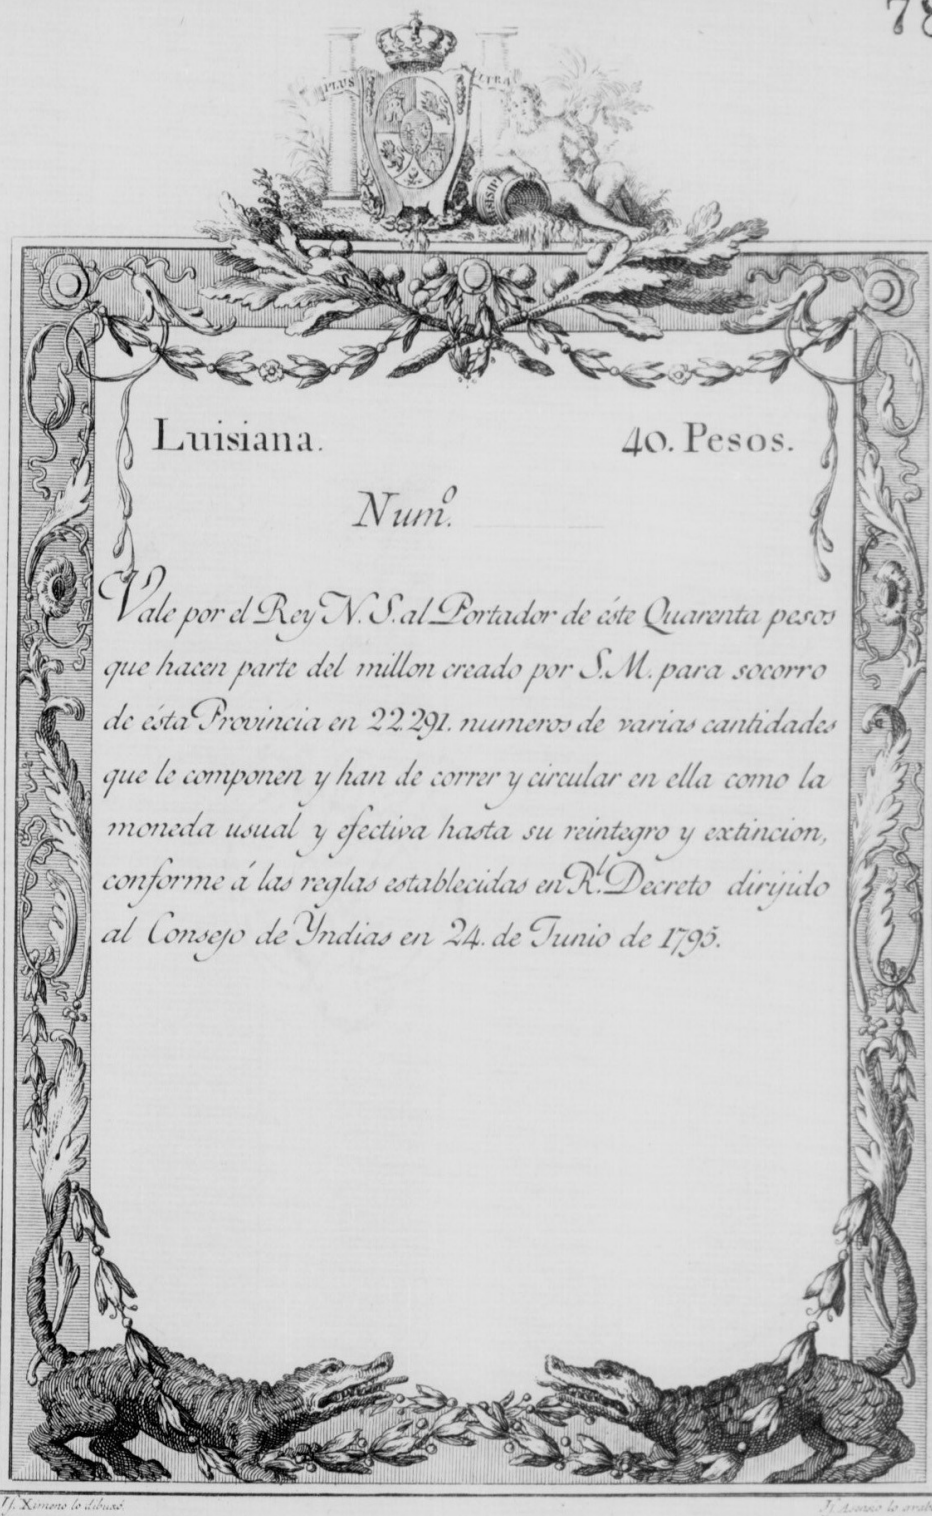 78
PLUS ULTRA
MISISI
Luisiana. 40. Pesos.
Num.º
Vale por el Rey N. S. al Portador de éste Quarenta pesos
que hacen parte del millon creado por S. M. para socorro
de ésta Provincia en 22.291. numeros de varias cantidades
que le componen y han de correr y circular en ella como la
moneda usual y efectiva hasta su reintegro y extincion,
conforme á las reglas establecidas en R.l Decreto dirijido
al Consejo de Yndias en 24. de Junio de 1795.
Jf. Ximeno lo dibuxó. Jf. Asensio lo